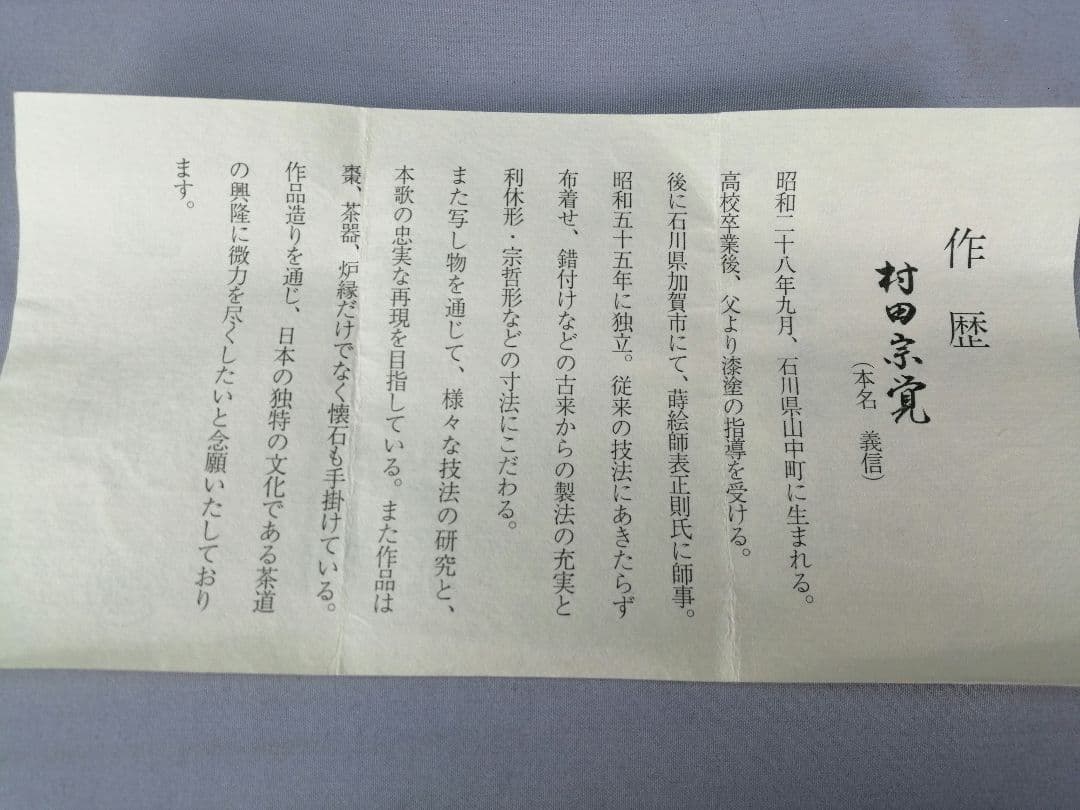 作歴
村田宗覚
（本名　義信）
昭和二十八年九月、石川県山中町に生まれる。
高校卒業後、父より漆塗の指導を受ける。
後に石川県加賀市にて、蒔絵師表正則氏に師事。
昭和五十五年に独立。従来の技法にあきたらず
布着せ、錆付けなどの古来からの製法の充実と
利休形・宗哲形などの寸法にこだわる。
また写し物を通じて、様々な技法の研究と、
本歌の忠実な再現を目指している。また作品は
棗、茶器、炉縁だけでなく懐石も手掛けている。
作品造りを通じ、日本の独特の文化である茶道
の興隆に微力を尽くしたいと念願いたしており
ます。